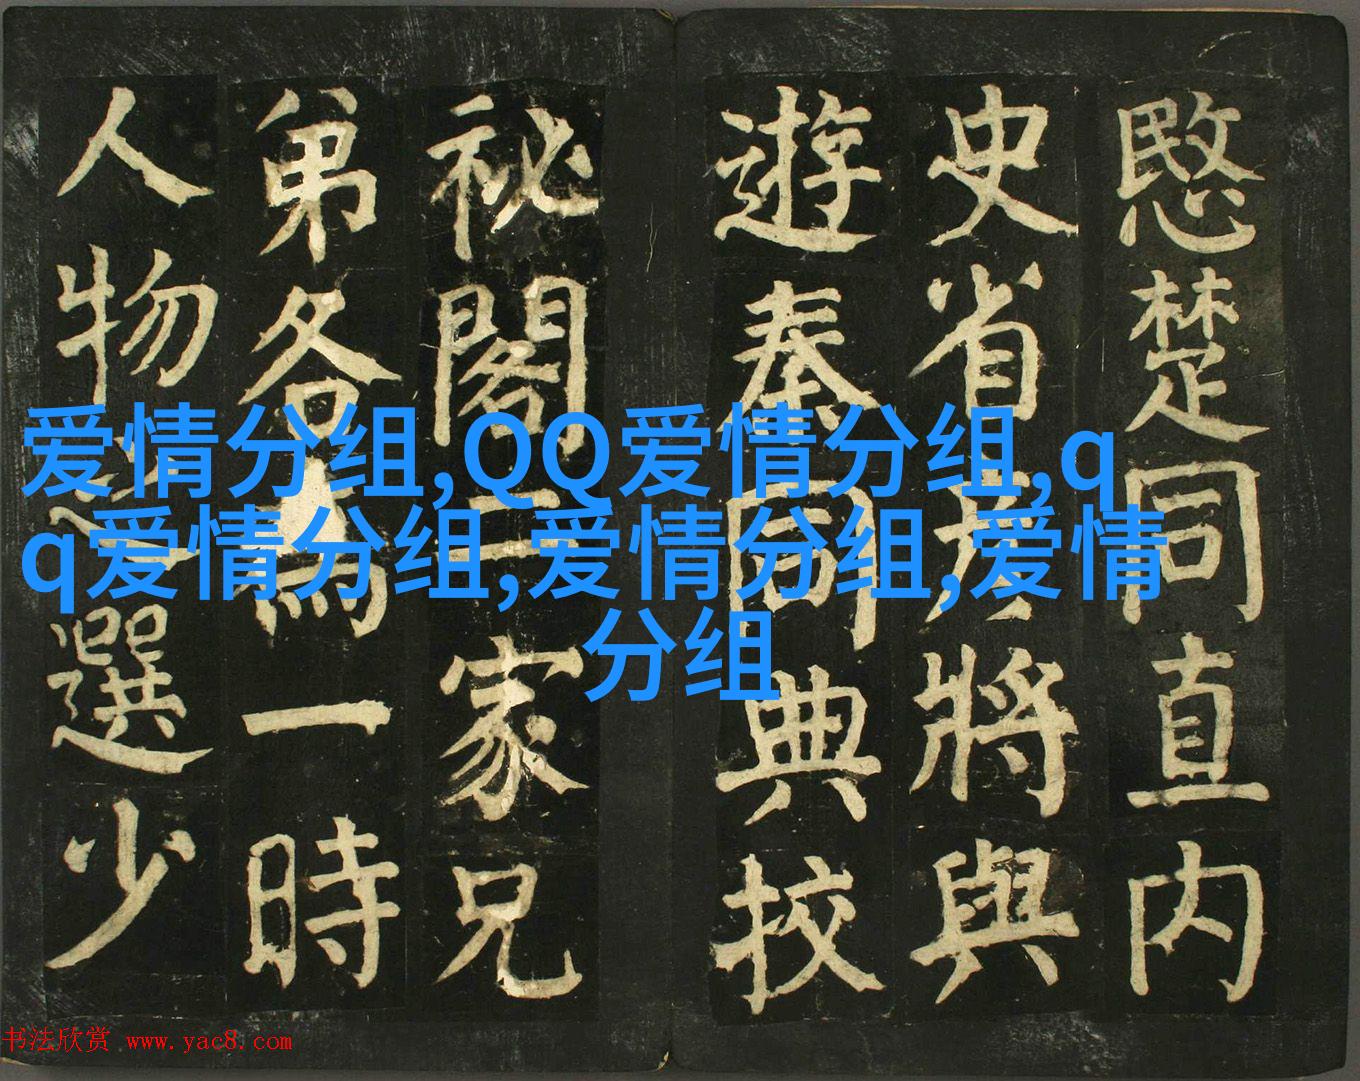 愍楚同直内
史省彦將與
遊秦同典校
祕閣二家兄
弟各為一時
人物之選少
爱情分组,QQ爱情分组,q
q爱情分组,爱情分组,爱情
分组
书法欣赏 www.yac8.com